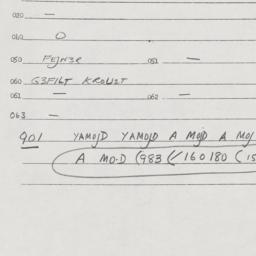 030 —
040 O
050 FEJN3R 051 —
060 G3FILT KROUST
061 — 062 —
063 —
901 YAMOJD YAMOJD A MOJD A MOJ
A MO.D (983 (/160180 (15